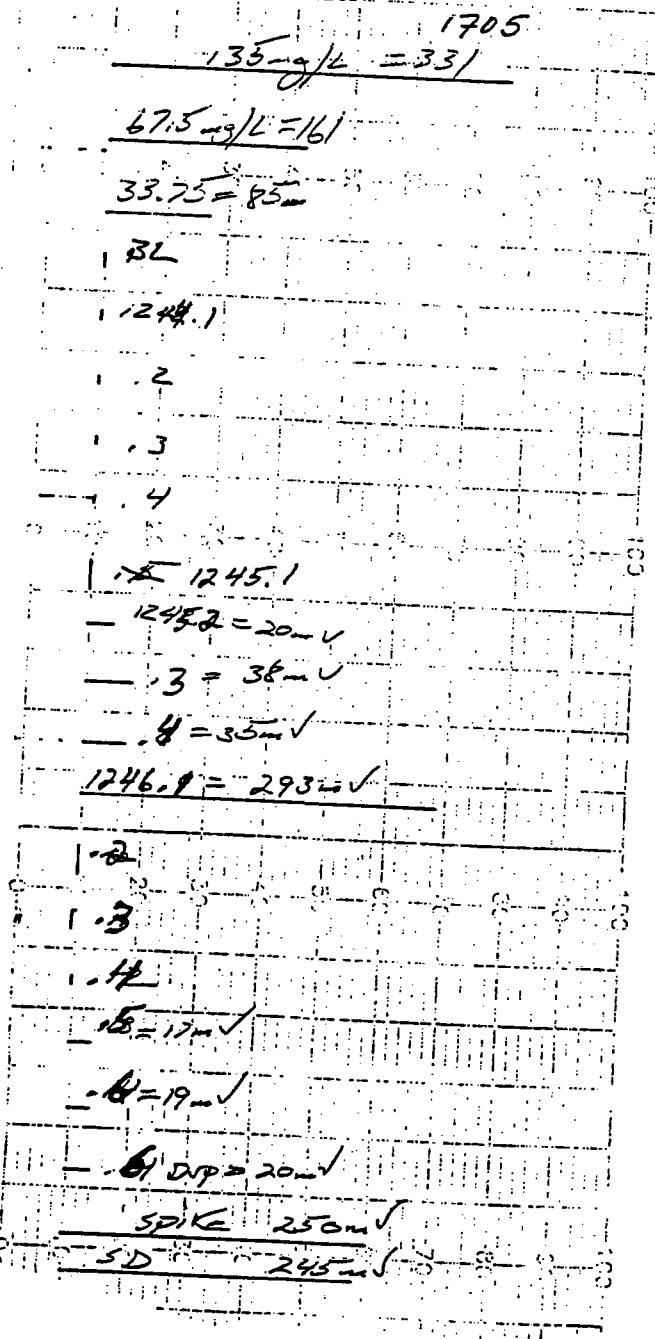 1705
135 mg/L = 331
67.5 mg/L = 161
33.75 = 85m
BL
1244.1
.2
.3
.4
1245.1
1245.2 = 20mV
.3 = 38mV
.4 = 35mV
1246.1 = 293mV
.2
.3
.4
= 17mV
= 19mV
Dup = 20mV
SPIKE 250mV
SD 245mV